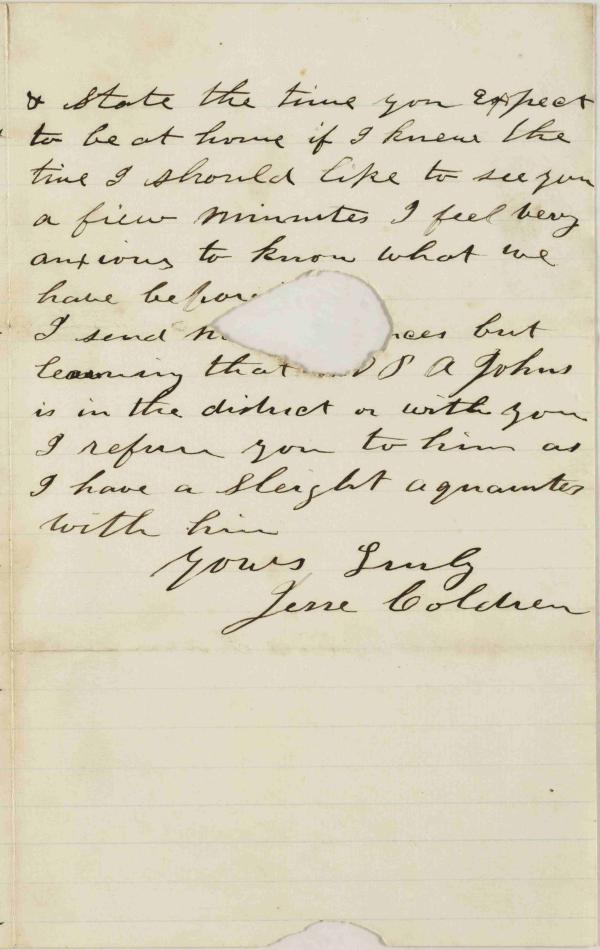 & State the time you expect
to be at home if I knew the
time I should like to see you
a fiew minnutes I feel very
anxious to know what we
have before
I send but
learning that P A Johns
is in the district or with you
I refurr you to him as
I have a Sleight aquaintes
with him
Yours Truly
Jesse Coldren